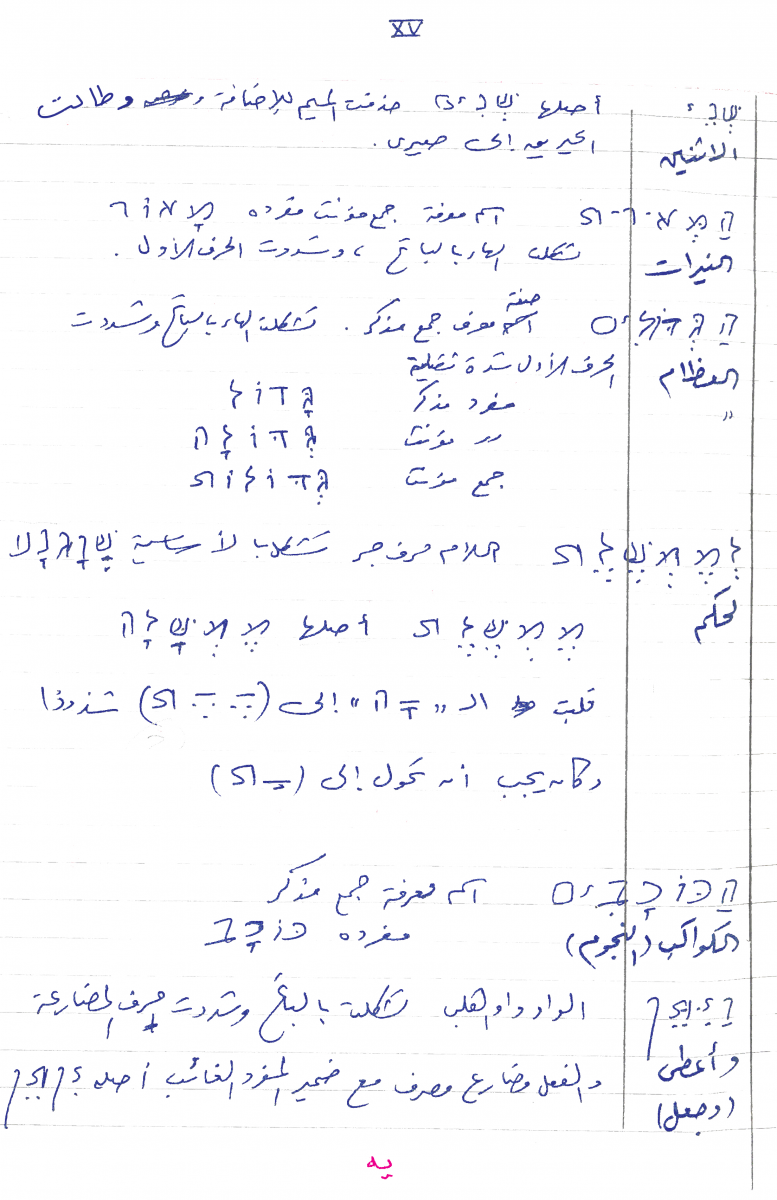 XV
שְׁנֵי أصلها שְׁנַיִם حذفت الميم للإضافة وطالت
الاثنين الحيريق إلى صيرى.
הַמְּאֹרֹת اسم معرفة جمع مؤنث مفرده מָאוֹר
النيرات شكلت الهاء بالباتح، وشددت الحرف الأول.
הַגְּדֹלִים صفة معرف جمع مذكر. شكلت الهاء بالباتح وشددت
العظام الحرف الأول شدة ثقيلة
" مفرد مذكر גָּדוֹל
〃 مؤنث גְּדוֹלָה
جمع مؤنث גְּדוֹלוֹת
לְמֶמְשֶׁלֶת اللام حرف جر شكلت بالأساسية שְׁוָא נָע
لحكم מֶמְשֶׁלֶת أصلها מֶמְשָׁלָה
قلبت الـ "ָה" إلى (ֶֶת) شذوذا
وكان يجب أن تحول إلى (ַת)
הַכּוֹכָבִים اسم معرفة جمع مذكر
الكواكب (النجوم) مفرده כּוֹכָב
וַיִּתֵּן الواو واو القلب شكلت بالباتح وشددت حرف المضارعة
وأعطى
(وجعل) والفعل مضارع مصرف مع ضمير المفرد الغائب أصله יִתֵּן
يه